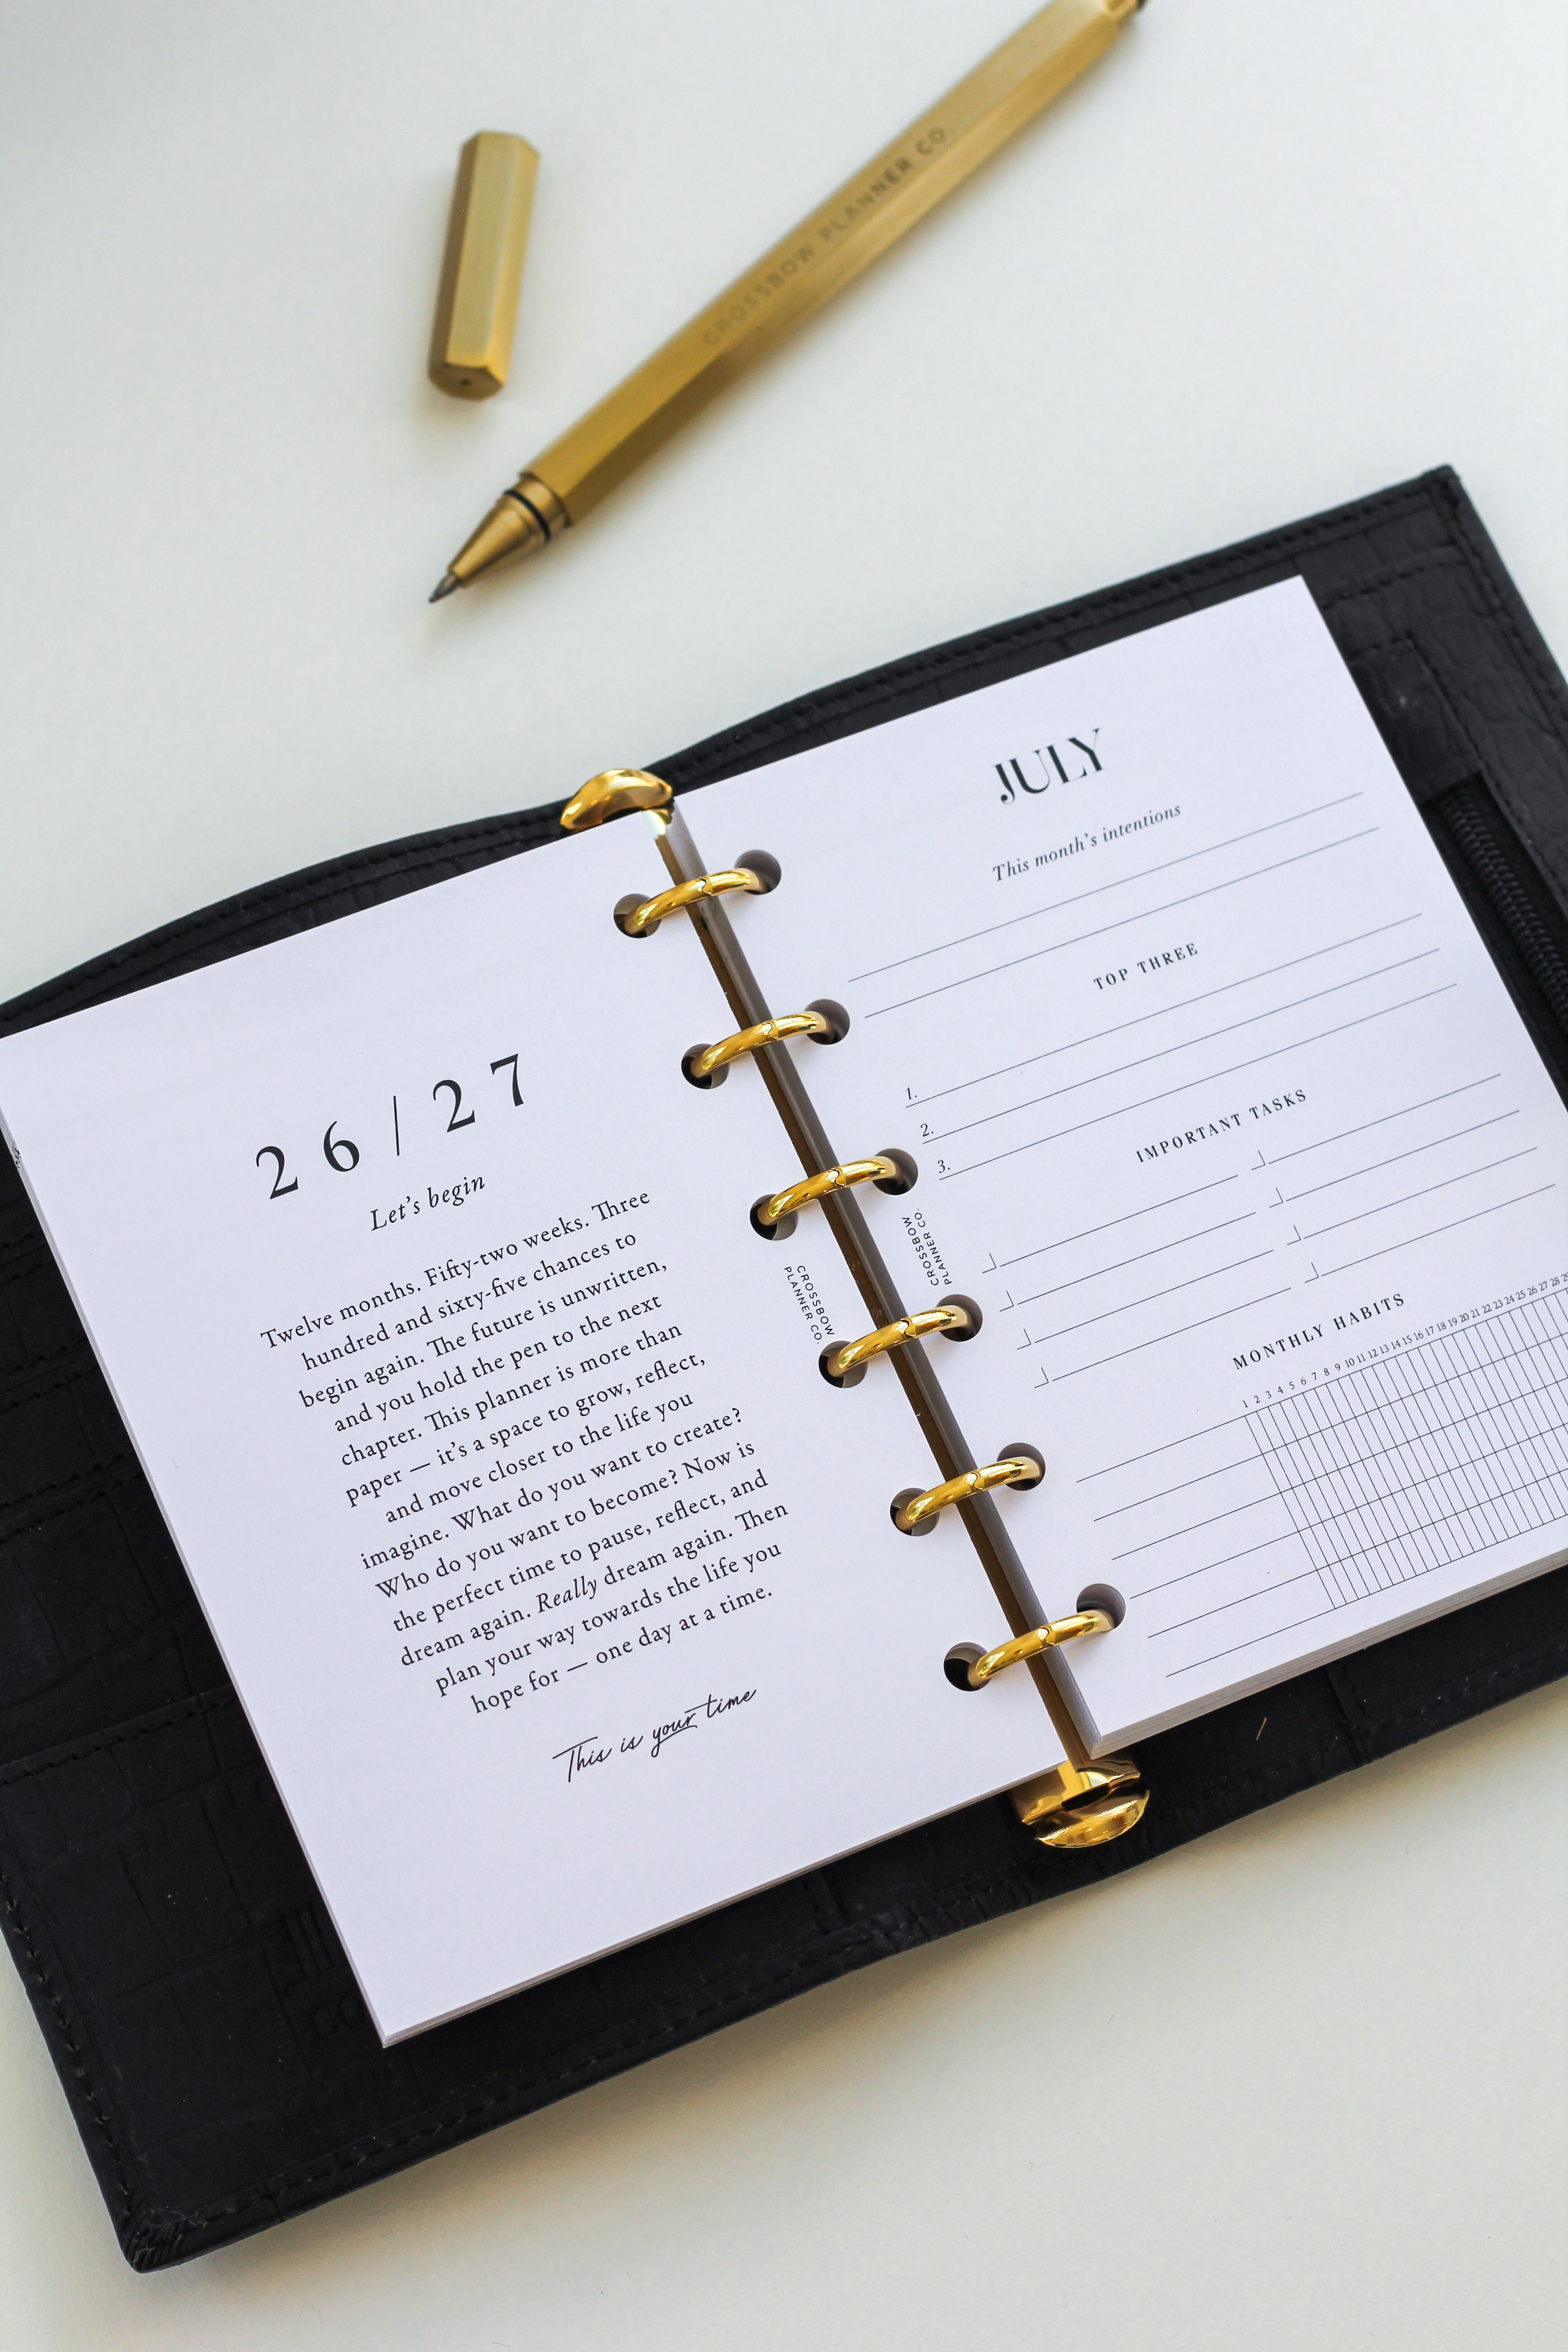 CROSSBOW PLANNER CO.
26/27
Let's begin
Twelve months. Fifty-two weeks. Three
hundred and sixty-five chances to
begin again. The future is unwritten,
and you hold the pen to the next
chapter. This planner is more than
paper — it's a space to grow, reflect,
and move closer to the life you
imagine. What do you want to create?
Who do you want to become? Now is
the perfect time to pause, reflect, and
dream again. Really dream again. Then
plan your way towards the life you
hope for — one day at a time.
This is your time
CROSSBOW
PLANNER CO.
JULY
This month's intentions
TOP THREE
1.
2.
3.
IMPORTANT TASKS
CROSSBOW
PLANNER CO.
MONTHLY HABITS
1 2 3 4 5 6 7 8 9 10 11 12 13 14 15 16 17 18 19 20 21 22 23 24 25 26 27 28